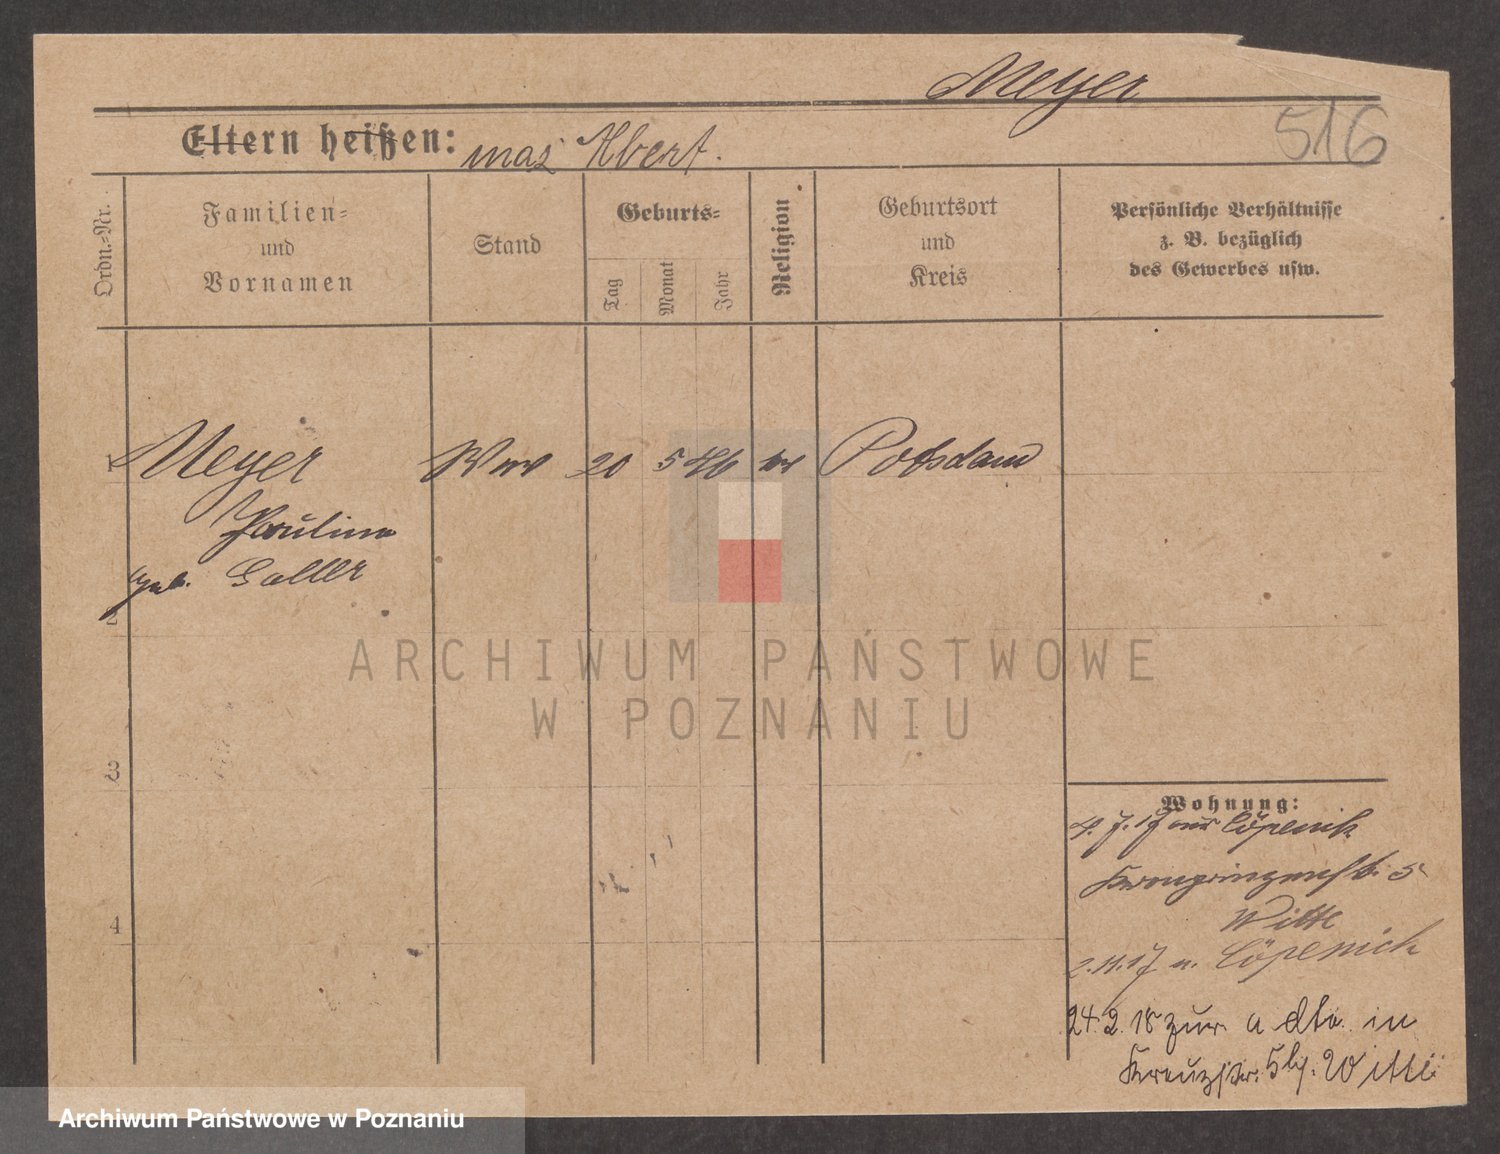 Meyer
516
Eltern heißen:
Albert.
Ordn.=Nr.
Familien=
und
Vornamen
Stand
Geburts=
Tag
Monat
Jahr
Religion
Geburtsort
und
Kreis
Persönliche Verhältnisse
z. B. bezüglich
des Gewerbes usw.
1 Meyer Wwe 20 5 46 ev Potsdam
Pauline
geb. Galler
2
3
4
Wohnung:
4.7.17 aus Cöpenick
Kronprinzenstr. 5
Witte
2.11.17 n. Cöpenick
24.2.18 zur. a dto. in
Kreuzstr. 5 b/. Witte
ARCHIWUM PAŃSTWOWE
W POZNANIU
Archiwum Państwowe w Poznaniu